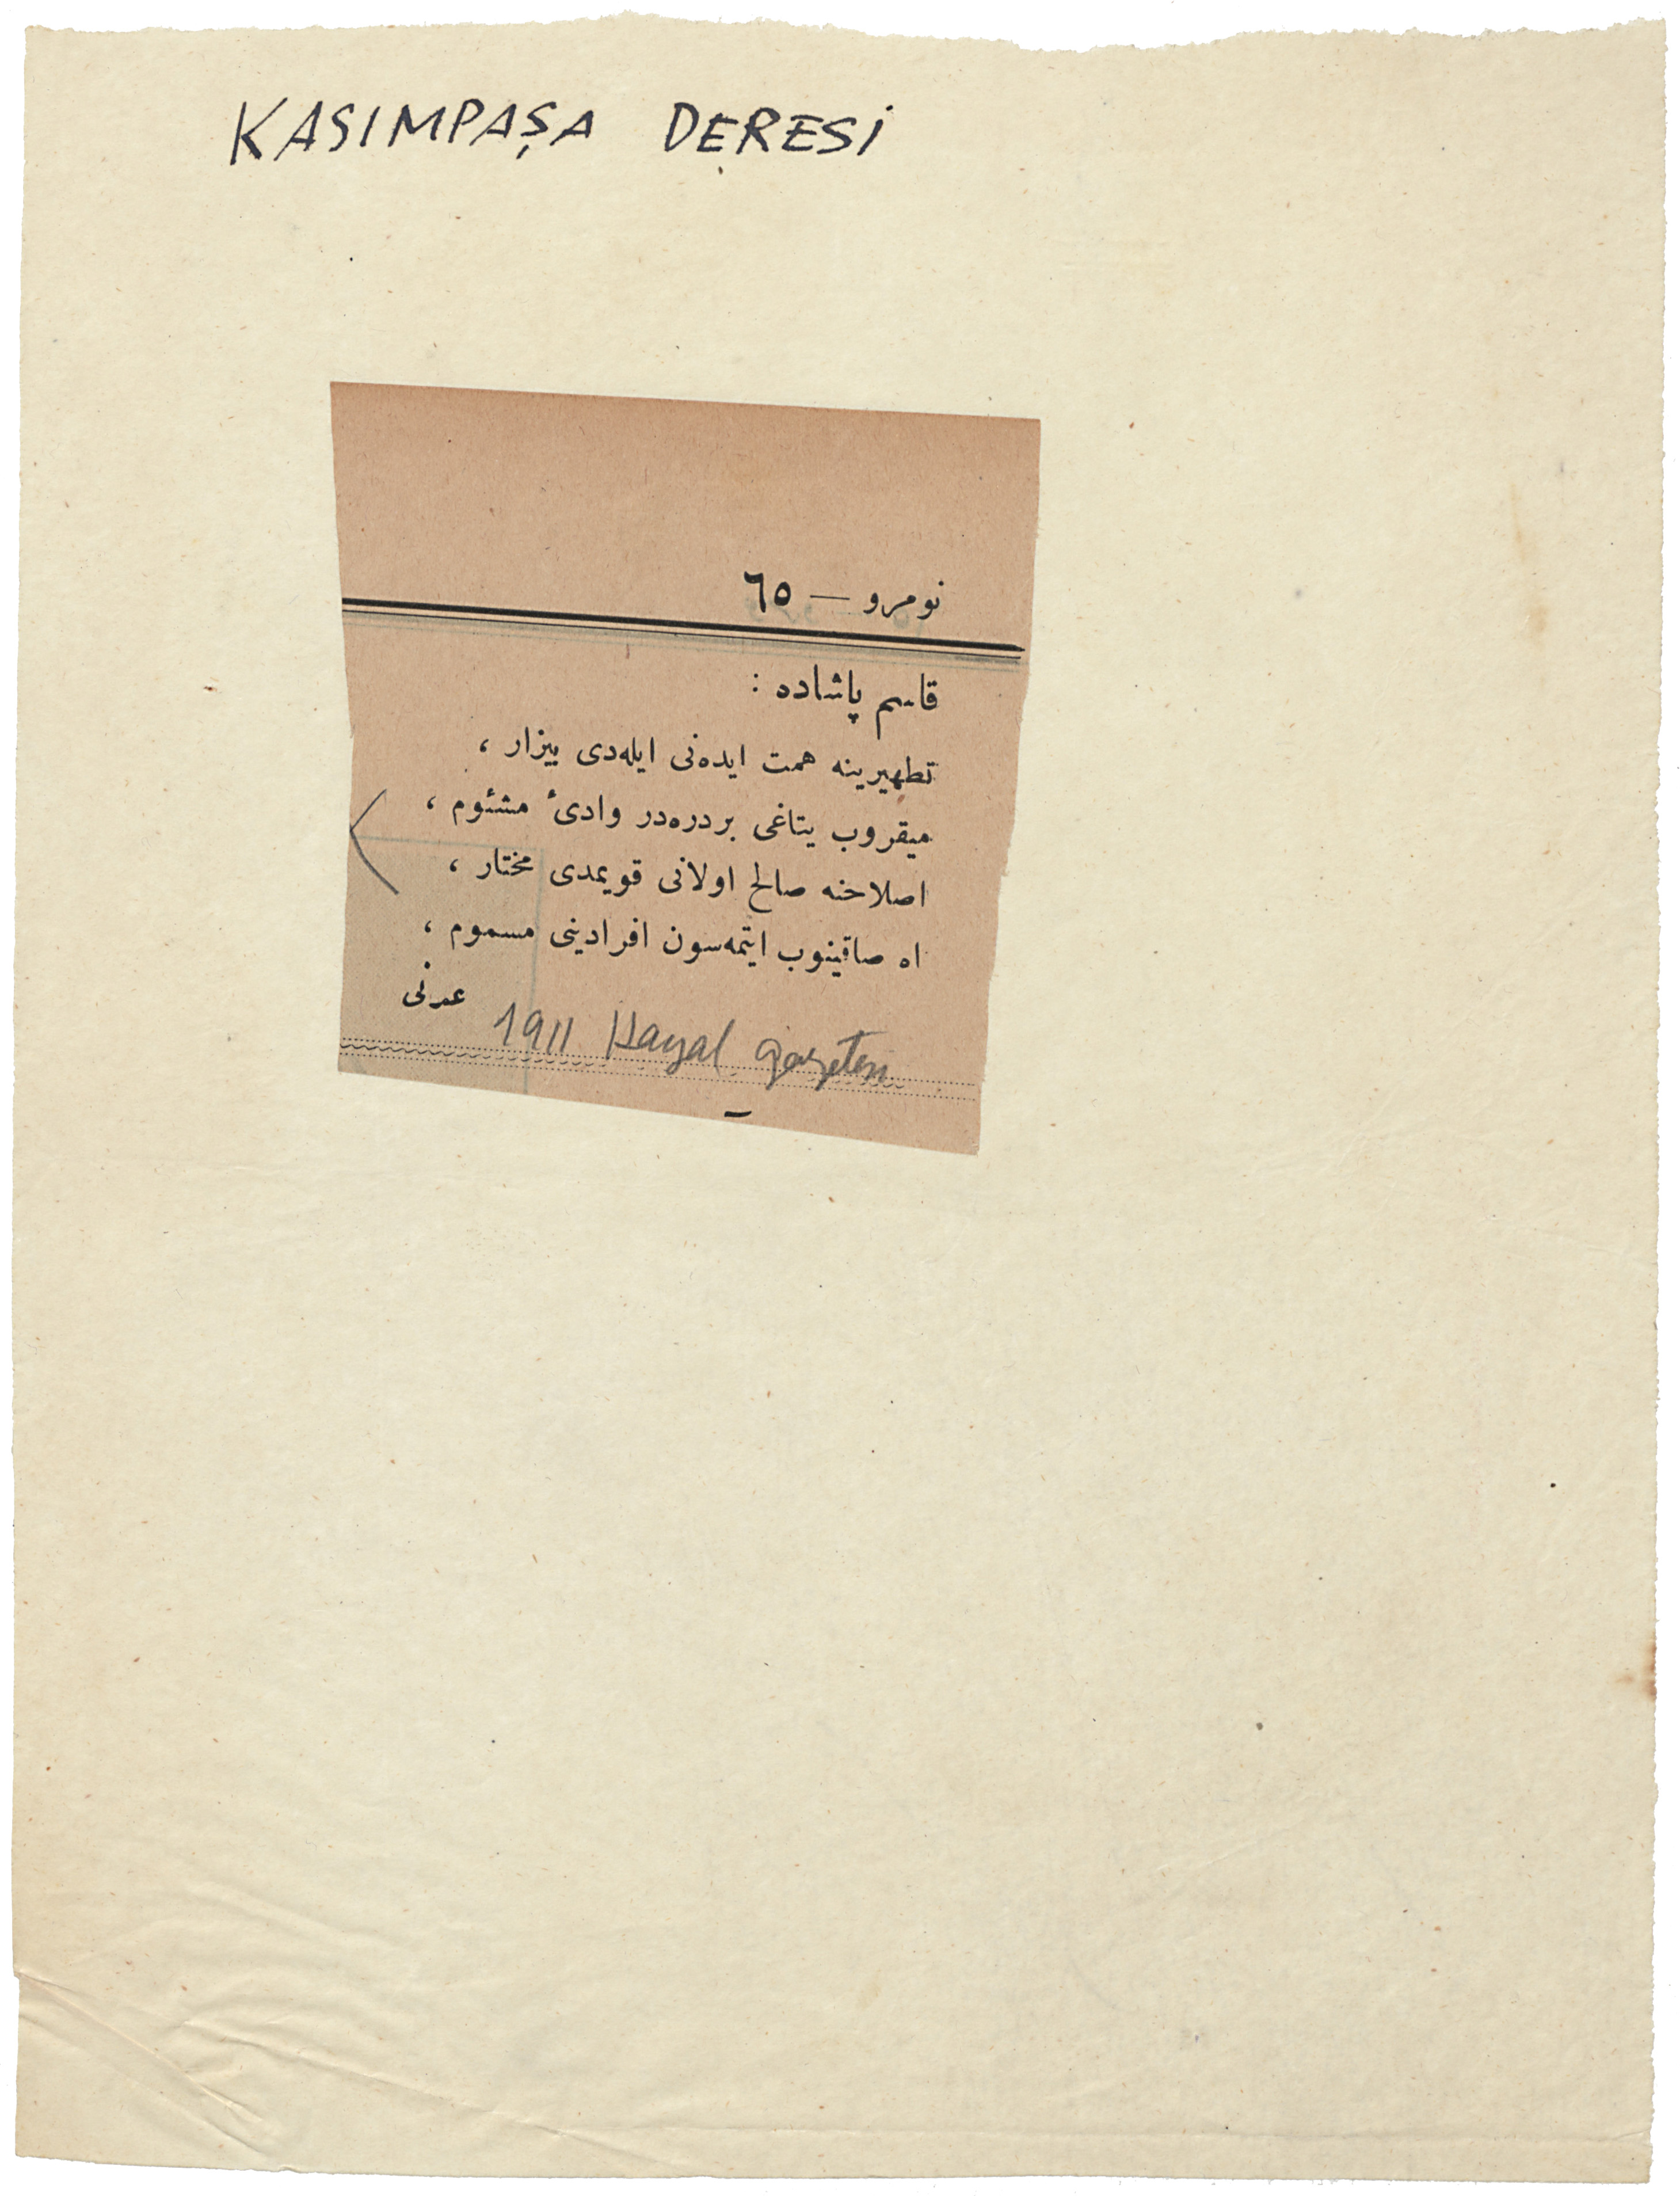 KASIMPAŞA DERESİ
نومرو — ٦٥
قاسم پاشاده :
تطهیرینه همت ایده‌نی ایله‌دی بیزار ،
میقروب یتاغی بردره‌در وادیٔ مشئوم ،
اصلاحنه صالح اولانی قویمدی مختار ،
اه صاقینوب ایتمه‌سون افرادینی مسموم ،
عدنی
1911 Hayal gazetesi